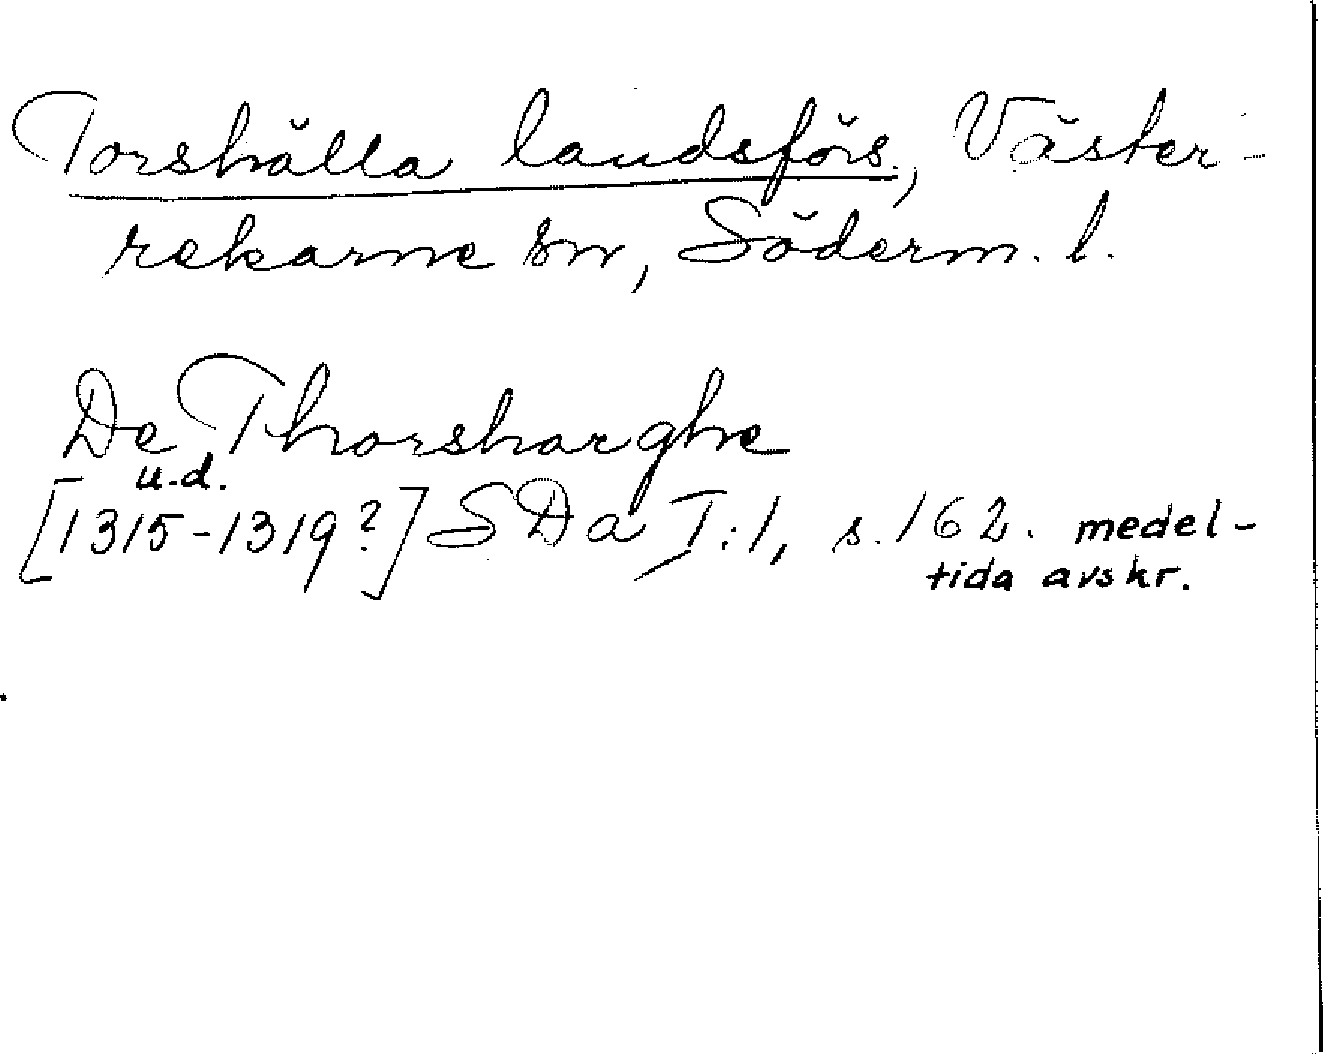 Torshälla landsförs., Väster-
rekarne hd, Söderm. l.
De Thorsharghe
u.d.
[1315-1319?] SDa I:1, s. 162. medel-
tida avskr.